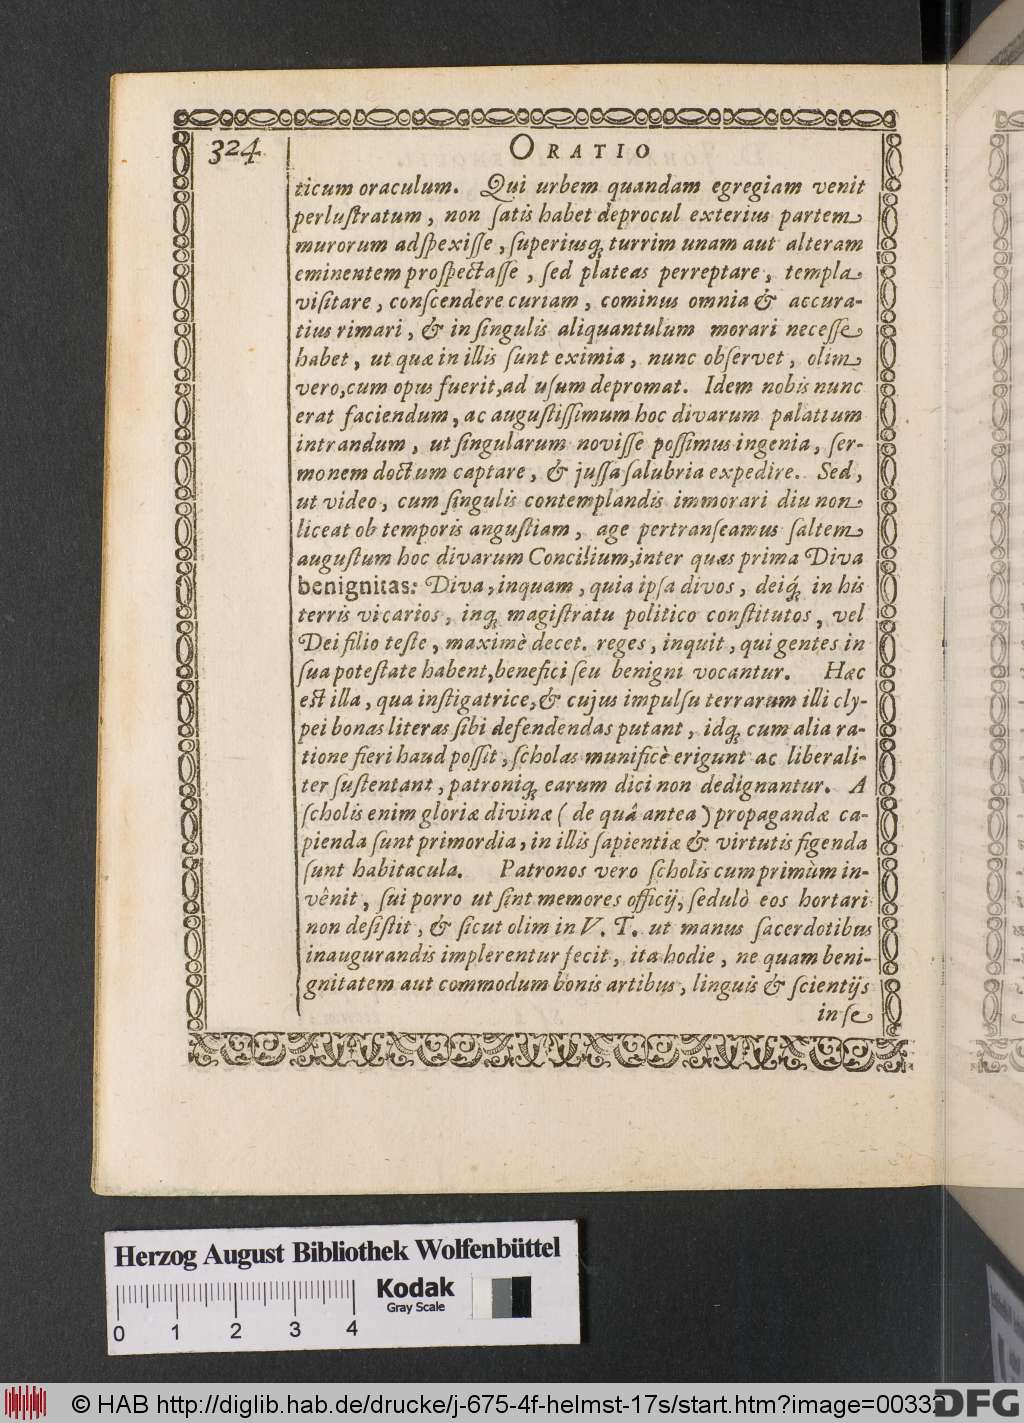 324
ORATIO
ticum oraculum. Qui urbem quandam egregiam venit
perluſtratum, non ſatis habet deprocul exterius partem
murorum adſpexiſſe, ſuperiusq́ turrim unam aut alteram
eminentem proſpectaſſe, ſed plateas perreptare, templa
viſitare, conſcendere curiam, cominus omnia & accura-
tius rimari, & in ſingulis aliquantulum morari neceſſe
habet, ut quæ in illis ſunt eximia, nunc obſervet, olim
vero, cum opus fuerit, ad uſum depromat. Idem nobis nunc
erat faciendum, ac auguſtiſſimum hoc divarum palatium
intrandum, ut ſingularum noviſſe poſſimus ingenia, ſer-
monem doctum captare, & juſſa ſalubria expedire. Sed,
ut video, cum ſingulis contemplandis immorari diu non
liceat ob temporis anguſtiam, age pertranſeamus ſaltem
auguſtum hoc divarum Concilium, inter quas prima Diva
benignitas: Diva, inquam, quia ipſa divos, deiq́ in his
terris vicarios, inq́ magiſtratu politico conſtitutos, vel
Dei filio teſte, maximè decet. reges, inquit, qui gentes in
ſua poteſtate habent, benefici ſeu benigni vocantur. Hæc
eſt illa, qua inſtigatrice, & cujus impulſu terrarum illi cly-
pei bonas literas ſibi defendendas putant, idq́ cum alia ra-
tione fieri haud poſſit, ſcholas munificè erigunt ac liberali-
ter ſuſtentant, patroniq́ earum dici non dedignantur. A
ſcholis enim gloriæ divinæ (de quâ antea) propagandæ ca-
pienda ſunt primordia, in illis ſapientiæ & virtutis figenda
ſunt habitacula. Patronos vero ſcholis cum primùm in-
vênit, ſui porro ut ſint memores officij, ſedulò eos hortari
non deſiſtit, & ſicut olim in V. T. ut manus ſacerdotibus
inaugurandis implerentur fecit, ita hodie, ne quam beni-
gnitatem aut commodum bonis artibus, linguis & ſcientijs
in ſe
Herzog August Bibliothek Wolfenbüttel
Kodak
Gray Scale
0 1 2 3 4
© HAB http://diglib.hab.de/drucke/j-675-4f-helmst-17s/start.htm?image=00332
DFG